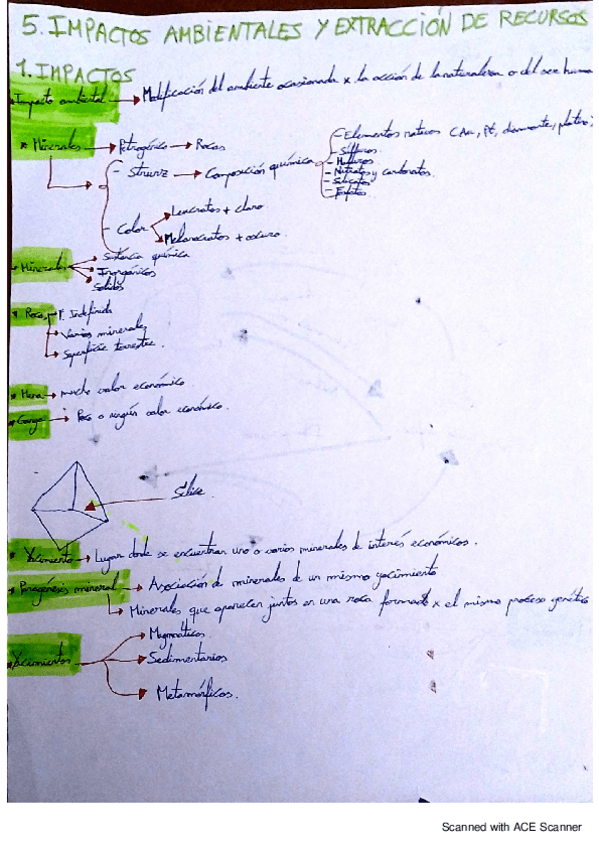 5. IMPACTOS AMBIENTALES Y EXTRACCIÓN DE RECURSOS
1. IMPACTOS
Impacto ambiental → Modificación del ambiente ocasionada x la acción de la naturaleza o del ser huma
* Minerales → Petrogénico → Rocas
- Strunz → Composición química
- Elementos nativos (Au, Pt, diamante, platino)
- Sulfuros
- Haluros
- Nitratos y carbonatos
- Silicatos
- Fosfatos
- Color
Leucratos + claro
Melanocratos + oscuro.
- Mineral
Sustancia química
Inorgánicos
Sólidos
* Roca
F. Indefinida
Varios minerales
Superficie terrestre.
* Mena → mucho valor económico
* Ganga → Poco o ningún valor económico.
Sílice
* Yacimiento → Lugar donde se encuentran uno o varios minerales de interés económicos.
* Paragénesis mineral → Asociación de minerales de un mismo yacimiento
Minerales que aparecen juntos en una roca formados x el mismo proceso genético
* Yacimientos
Magmáticos
Sedimentarios
Metamórficos.
Scanned with ACE Scanner